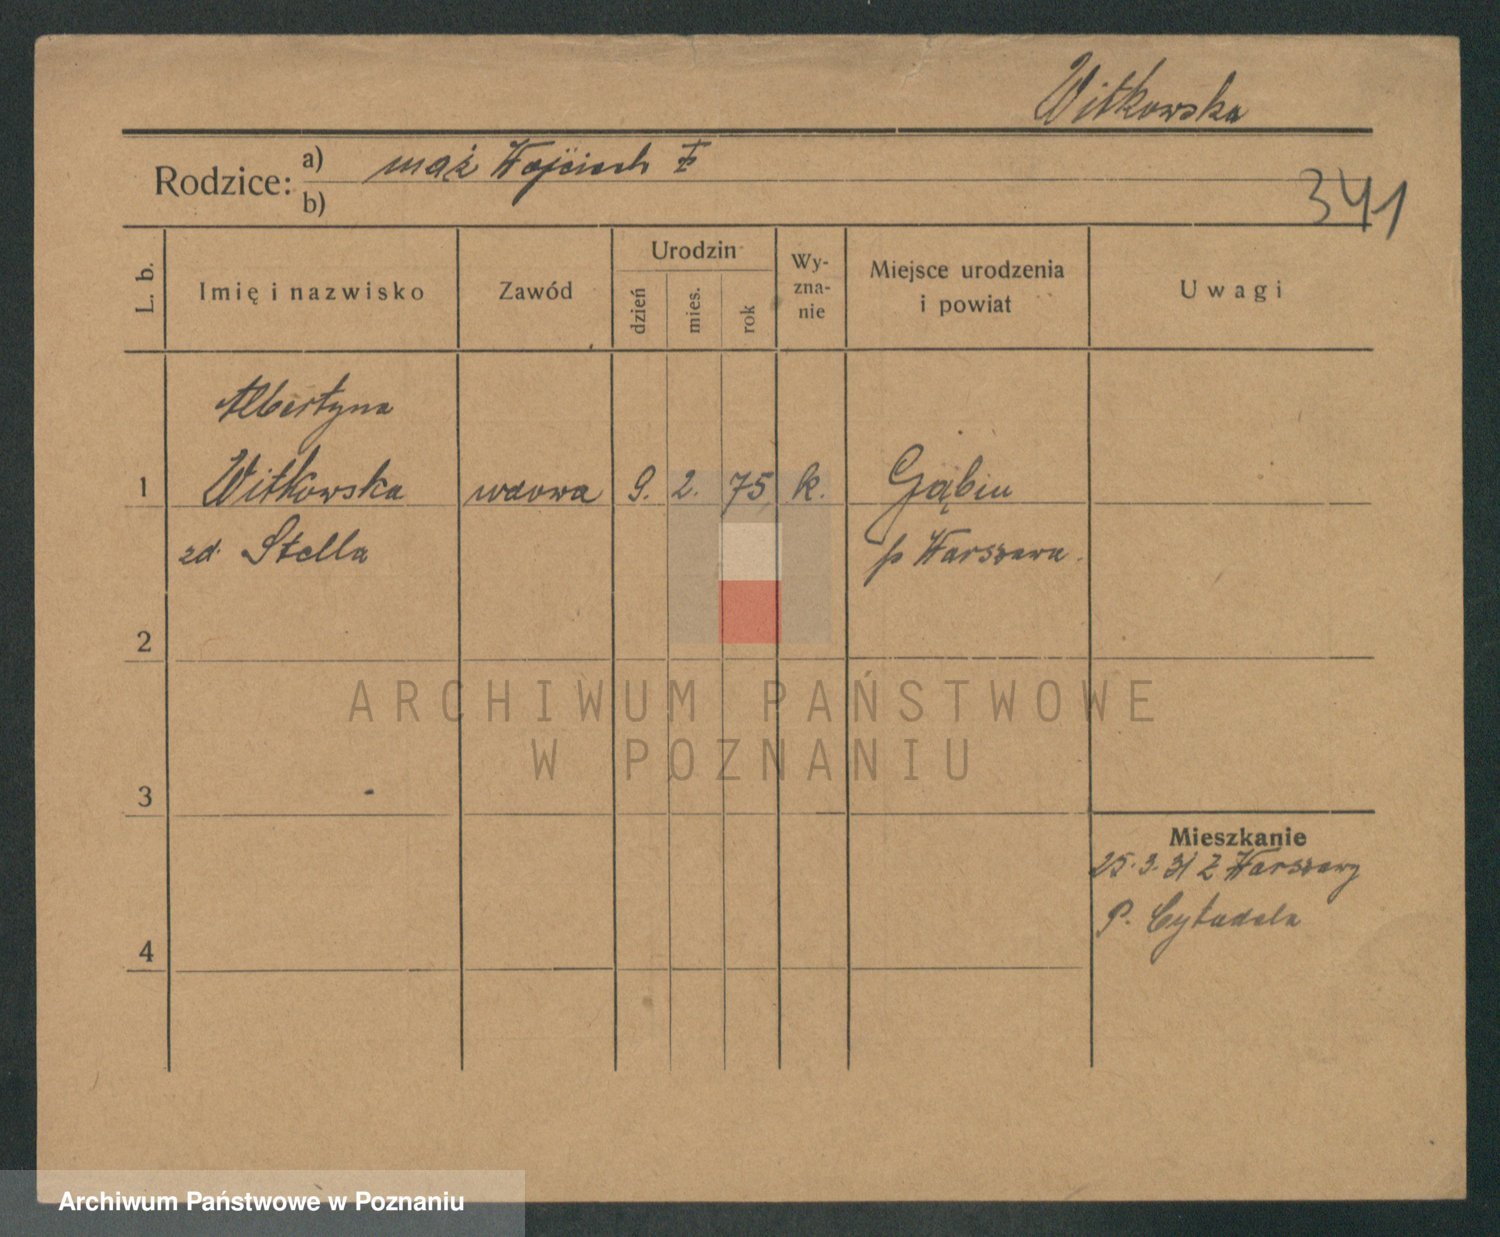 Witkowska
Rodzice: a) mąż Wojciech
b)
341
L. b.
Imię i nazwisko
Zawód
Urodzin
dzień
mies.
rok
Wy-
zna-
nie
Miejsce urodzenia
i powiat
Uwagi
Albertyna
1 Witkowska wdowa 9. 2. 75 k. Gąbin
zd. Stella p Warszawa.
2
3
4
Mieszkanie
25.3.31 Z Warszawy
P. Cytadela
ARCHIWUM PAŃSTWOWE
W POZNANIU
Archiwum Państwowe w Poznaniu